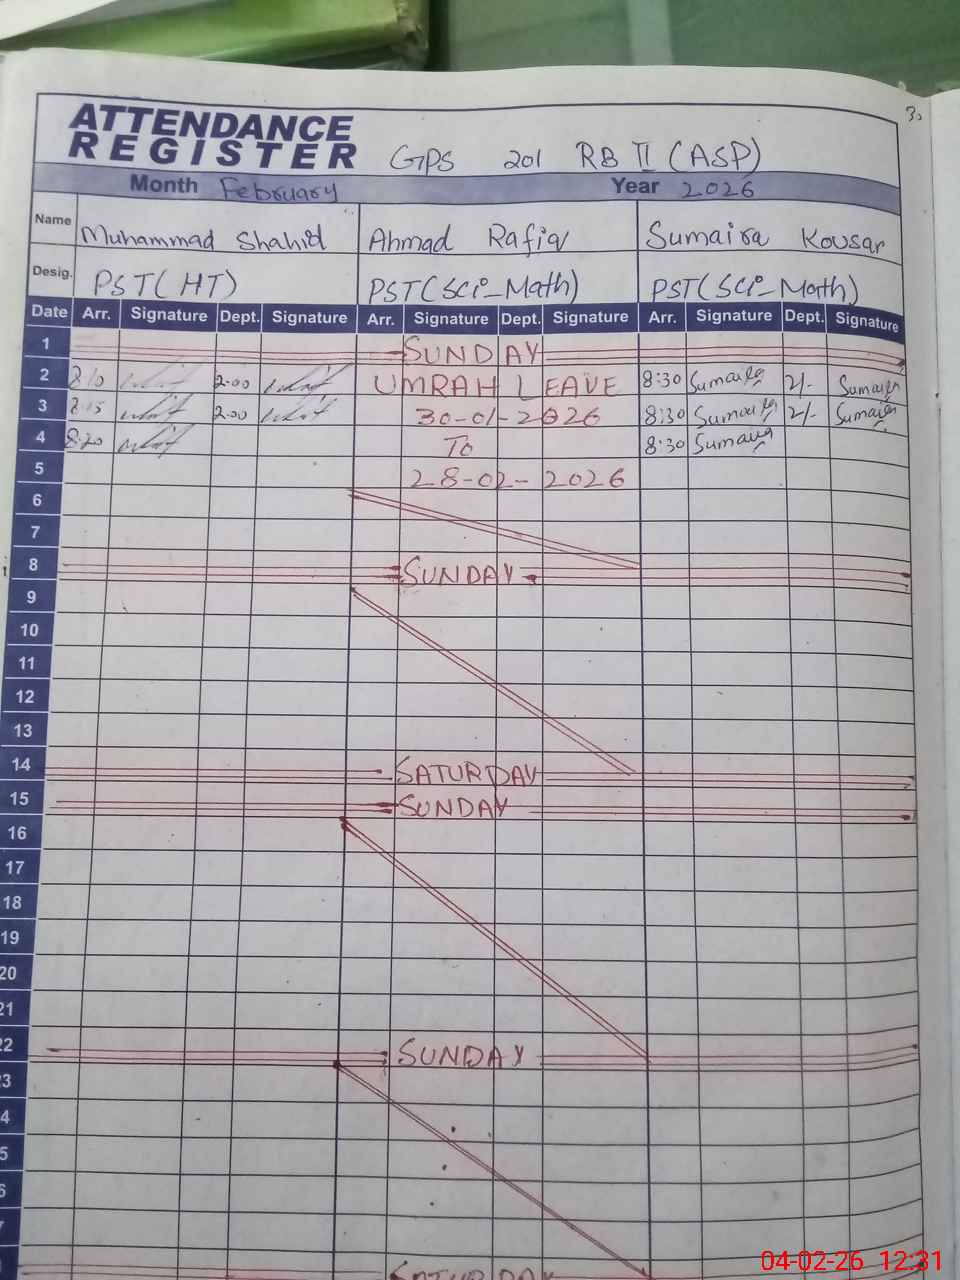 30
ATTENDANCE
REGISTER GPS 201 RB II (ASP)
Month February Year 2026
Name Muhammad Shahid Ahmad Rafiq Sumaira Kousar
Desig. PST(HT) PST(Sci-Math) PST(Sci-Math)
Date Arr. Signature Dept. Signature Arr. Signature Dept. Signature Arr. Signature Dept. Signature
1 SUNDAY
2 8/10 2:00 UMRAH LEAVE 8:30 Sumaira 2/- Sumaira
3 8:15 2:00 30-01-2026 8:30 Sumaira 2/- Sumaira
4 8:20 To 8:30 Sumaira
5 28-02-2026
6
7
8 SUNDAY
9
10
11
12
13
14 SATURDAY
15 SUNDAY
16
17
18
19
20
21
22 SUNDAY
23
4
5
6
7
SATURDAY
04-02-26 12:31